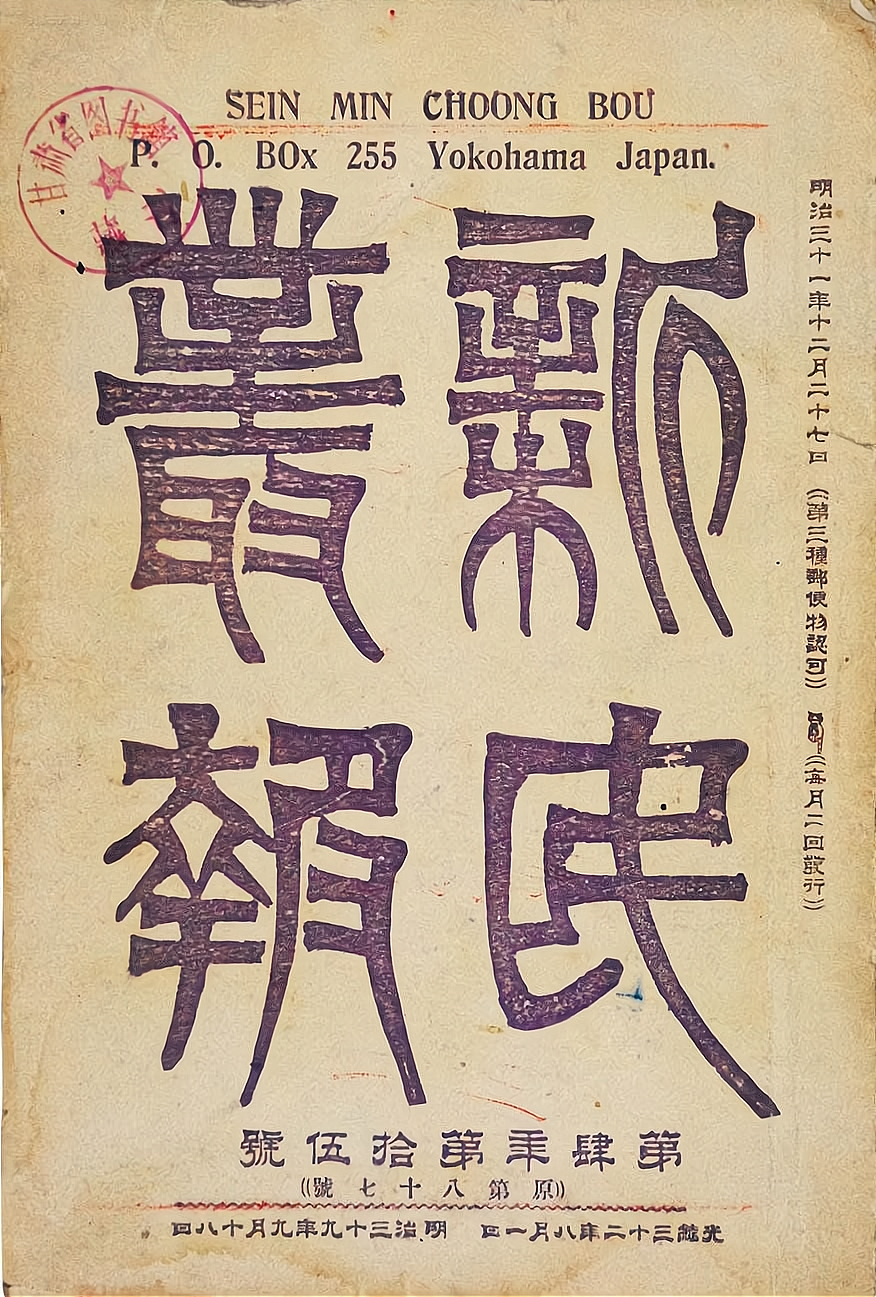 SEIN MIN CHOONG BOU
P. O. BOx 255 Yokohama Japan.
甘肃省图书馆
藏书
明治三十一年十二月二十七日((第三種郵便物認可))
((每月二回發行))
新民
叢報
第肆年第拾伍號
((原第八十七號))
光緒三十二年八月一日 明治三十九年九月十八日